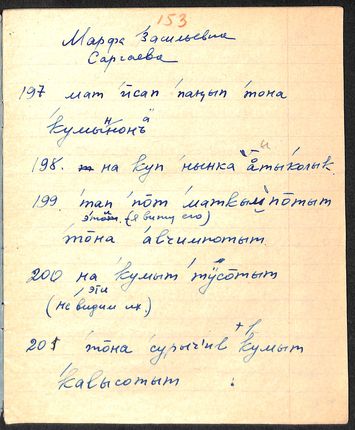 153
Марфа Васильевна
Саргаева
197 мат 'ӣсап 'паӊып 'то̄на
'кумы
198. на куп 'нынка
199 'тап 'по̄т 'маткы 'по̄тыт
(я вижу его)
'то̄на 'авчимпотыт
200 на 'кумыт
эти
(не видим их)
201 'то̄на 'сурыч'ив 'кумыт
'кавысотыт